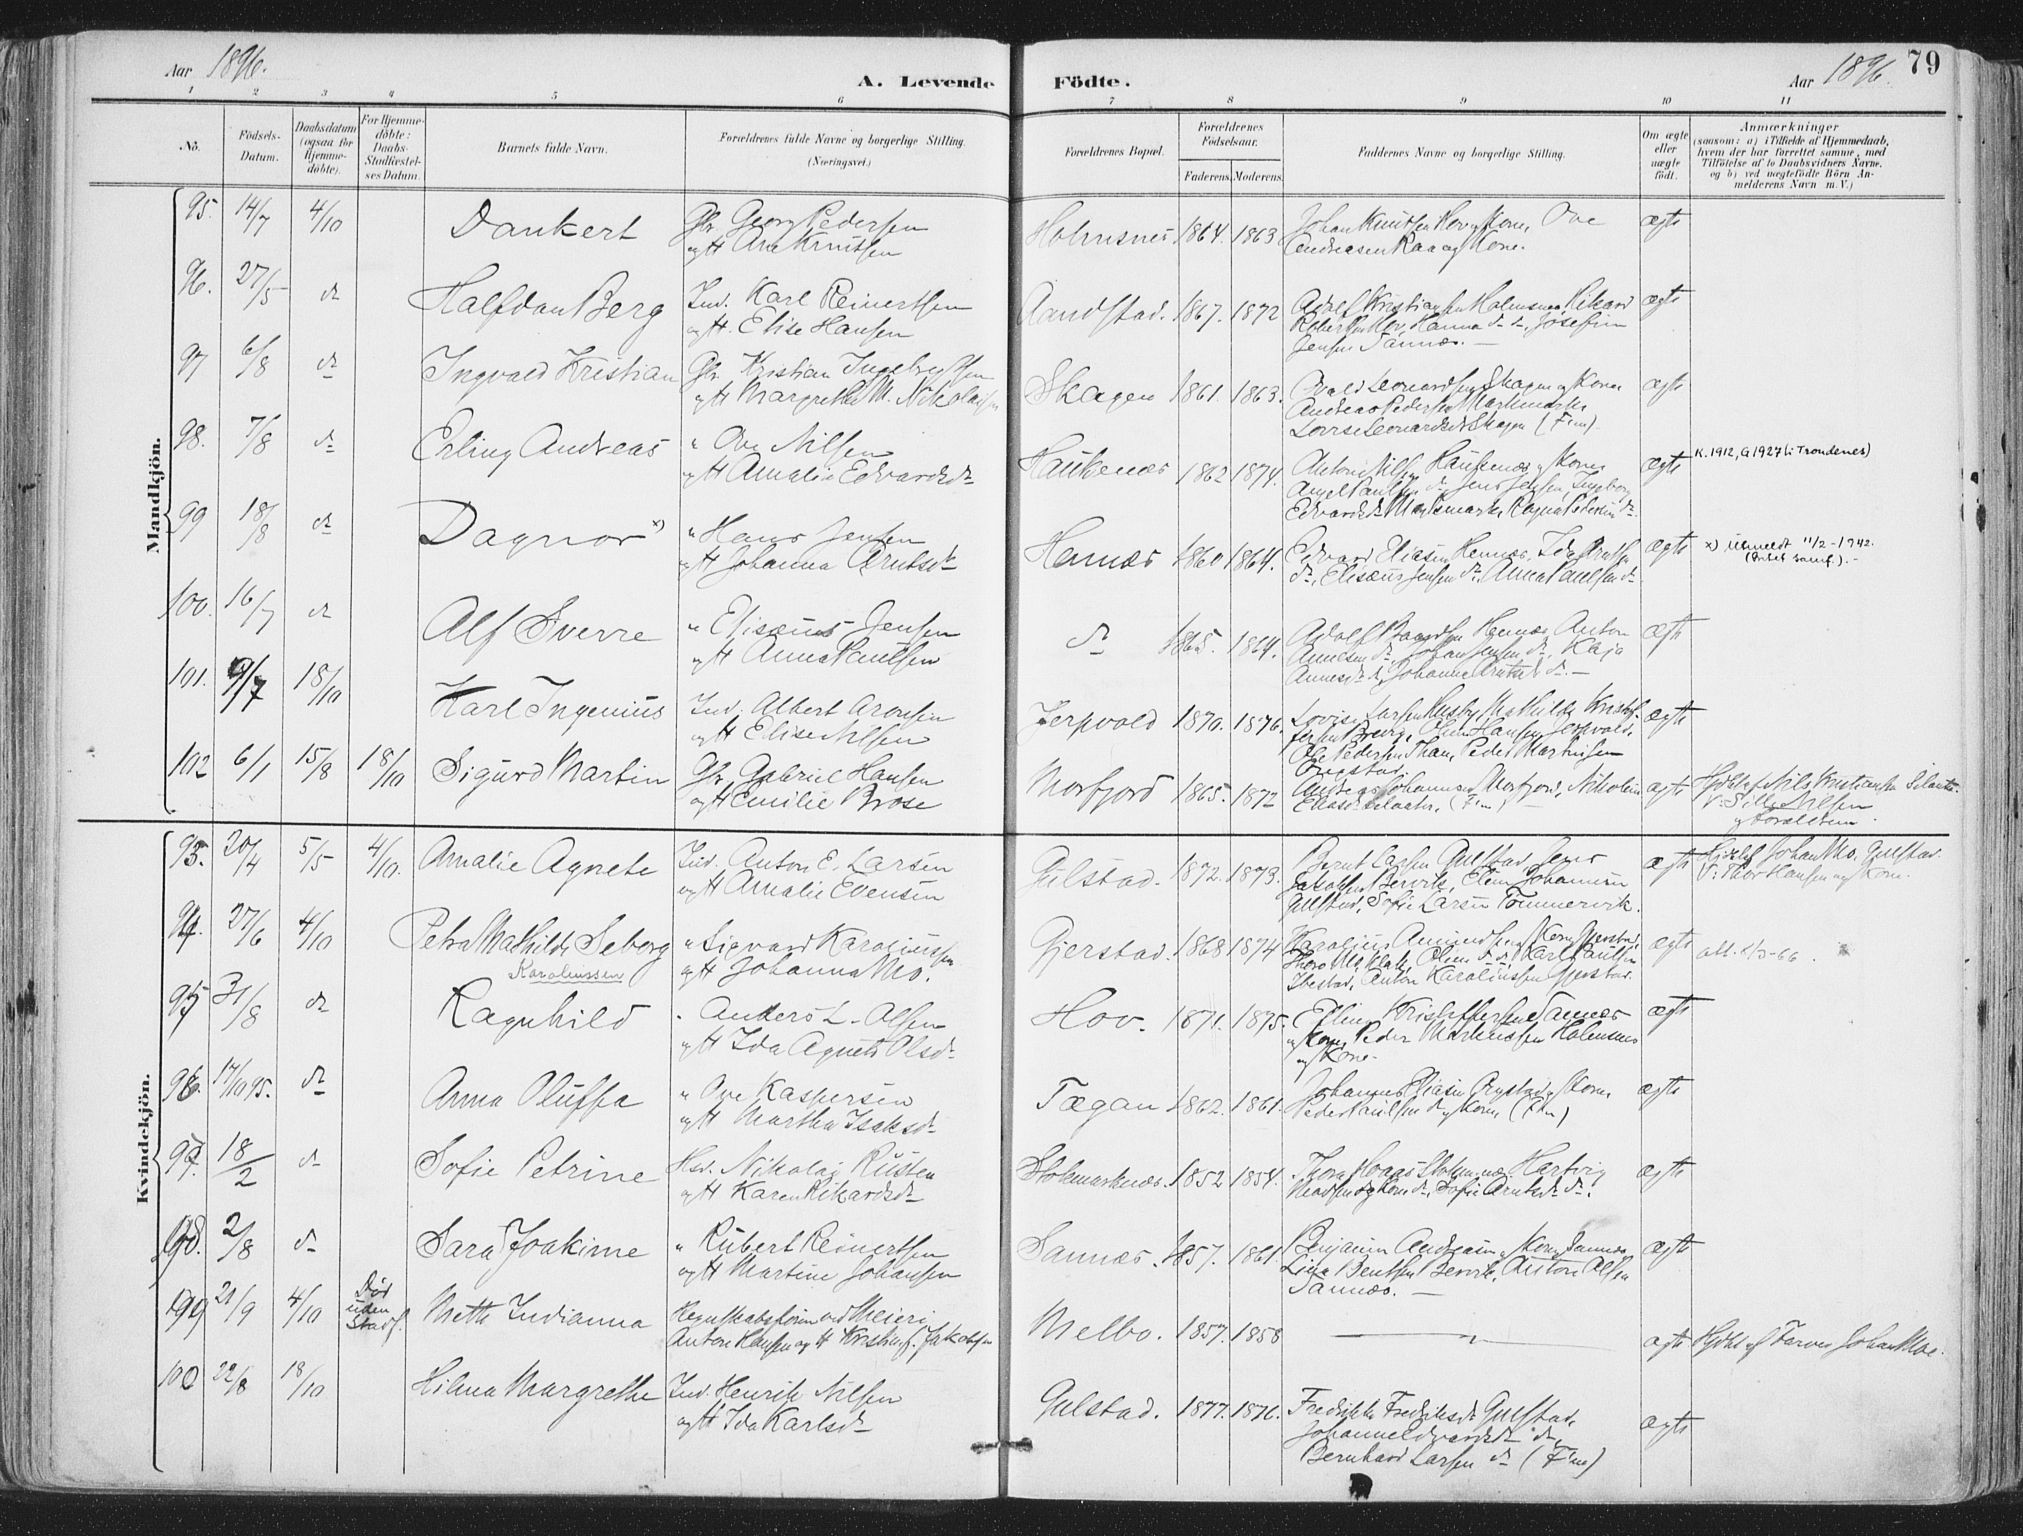 Aar 1896.
A. Levende Födte.
Aar 1896.
79
1 2 3 4 5 6 7 8 9 10 11
No.
Födsels-
Datum.
Daabsdatum
(ogsaa for
Hjemme-
döbte).
For Hjemme-
döbte:
Daabs-
Stadfæstel-
ses Datum.
Barnets fulde Navn.
Forældrenes fulde Navne og borgerlige Stilling.
(Næringsvei.)
Forældrenes Bopæl.
Forældrenes
Födselsaar.
Faderens. Moderens.
Faddernes Navne og borgerlige Stilling.
Om ægte
eller
uægte
födt.
Anmærkninger
(saasom: a) i Tilfælde af Hjemmedaab,
hvem der har forrettet samme, med
Tilföielse af to Daabsvidners Navne.
og b) ved uægtefödte Börn An-
melderens Navn m. V.)
Mandkjön.
95. 14/7 4/10 Dankert Gbr. Georg Pedersen
og H Ane Knutsen
Holmsnes 1864. 1863 Johan Knutsen Hov og Kone, Ove
Andreasen Raa og Kone.
ægte
96. 27/5 do Halfdan Berg Ind. Karl Reinertsen
og H. Elise Hansen
Aandstad. 1867. 1872 Adolf Kristiansen Holmsnes, Rikard
Robertsen Hov, Hanna do do, Josefine
Jensen Sannes.
ægte
97 6/8 do Ingvald Kristian Gbr. Kristian Ingebrigtsen
og H Margrethe M. Nikolaisen
Skagen 1861. 1863. Leonardsen Skagen og Kone
Andreas Pedersen
Lovise Leonardsdr Skagen (Fm).
ægte
98. 7/8 do Erling Andreas " Ove Nilsen
og H Amalie Edvardsdr
Haukenes 1862 1874. Anton Nilsen Haukenes og Kone
Paulsen do, Jens Jensen, Ingeborg
Edvardsdr Ragna Pedersen do.
ægte K. 1912, G 1927 (i Trondenes)
99 18/8 do Dagnor x) " Hans Jensen
og H Johanna Arntsdr
Hennes 1860 1864. Edvard Eliasen Hennes, Ida Arntsen
do, Elisæus Jensen do, Anna Paulsen do
ægte x) utmeldt 11/2-1942.
100. 16/7 do Alf Sverre " Elisæus Jensen
og H Anna Paulsen
do 1865. 1864. Adolf Hennes, Anton
Annesen do, Johan Jensen do, Kaja
Annesdr do, Johanne Arntsdr do.
ægte
101. 9/7 18/10 Karl Ingenius Ind. Albert Aronsen
og H Elise Nilsen
Jerpvold 1870. 1876. Lovise Larsen Husby, Mathilde Kristof-
fersen Olum Hansen Jerpvold,
Ole Pedersen Peder Martinsen
ægte
102 6/1 15/8 18/10 Sigurd Martin Gbr. Gabriel Hansen
og H Emilie Brose
Morfjord 1865. 1872 Andreas Johannesen Morfjord, Nikoline
(Fm)
ægte Hjdbt af Nils Kristiansen
V: Nilsen
og Forældrene.
Kvindekjön.
93. 20/4 5/5 4/10. Amalie Agnete Ind. Anton E. Larsen
og H Amalie Evensen
Gulstad. 1872. 1873. Bernt Larsen Gulstad, Jens
Jakobsen Bervik, Elen Johannsen
Gulstad, Sofie Larsen Tömmervik.
ægte Hjdbt af Johan Mo, Gulstad.
V: Thor Hansen og Kone.
94. 27/6 4/10 Petra Mathilde Seborg " Sigvard Karoliussen
og H Johanna Mo.
Karoliussen
Gjerstad. 1868 1874 Karolius Amundsen og Kone Gjerstad,
Karl Paulsen
Ibestad, Anton Karoliussen Gjerstad.
ægte att. 8/3-66
95 31/8 do Ragnhild " Anders L. Olsen
og H Ida Agnete Olsdr
Hov. 1871. 1875. Kristoffersen Sannes
og Kone, Peder Martinussen Holmsnes
og Kone.
ægte
96. 17/10 95. do Anna Oluffa " Ove Kaspersen
og H Martha Isaksdr
Tægan 1862. 1861. Johannes Eliasen og Kone,
Peder Paulsen do og Kone, (Fm)
ægte
97. 18/2 do Sofie Petrine Hsd. Nikolai Rusten
og H Karen Rikardsdr
Stokmarknes. 1852 1854. Thora Haags Stokmarknes, Hartvig
Madsen og Kone do, Sofie Arntsdr do.
ægte
98. 2/8 do Sara Joakime " Robert Reinertsen
og H Martine Johansen
Sannes. 1857. 1861. Benjamin Andreasen og Kone Sannes,
Lina Bentsen Bervik, Anton Olsen
Sannes.
ægte
99 21/9 4/10 Död
uden
Stadf.
Mette Indianna Regnskabsförer ved Meieri
Anton Hansen og H Kristine f. Jakobsen
Melbo. 1857. 1858 "
ægte Hjdbt af Farver Johan Moe.
100 22/8 18/10 Hilma Margrethe Ind. Henrik Nilsen
og H Ida Karlsdr
Gulstad. 1877. 1876. Fredrikke Fredriksdr Gulstad,
Johanne Edvardsdr do,
Bernhard Larsen do (Fm)
ægte